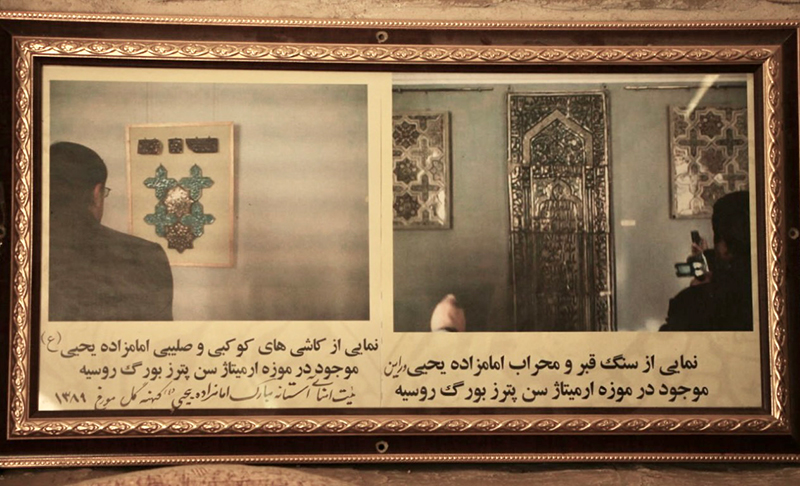 نمایی از کاشی های کوکبی و صلیبی امامزاده یحیی (ع)
موجود در موزه ارمیتاژ سن پترز بورگ روسیه
هیئت امنای آستانه مبارک امامزاده یحیی (ع) کهنه گل مورخ ۱۳۸۹
نمایی از سنگ قبر و محراب امامزاده یحیی ورامین
موجود در موزه ارمیتاژ سن پترز بورگ روسیه